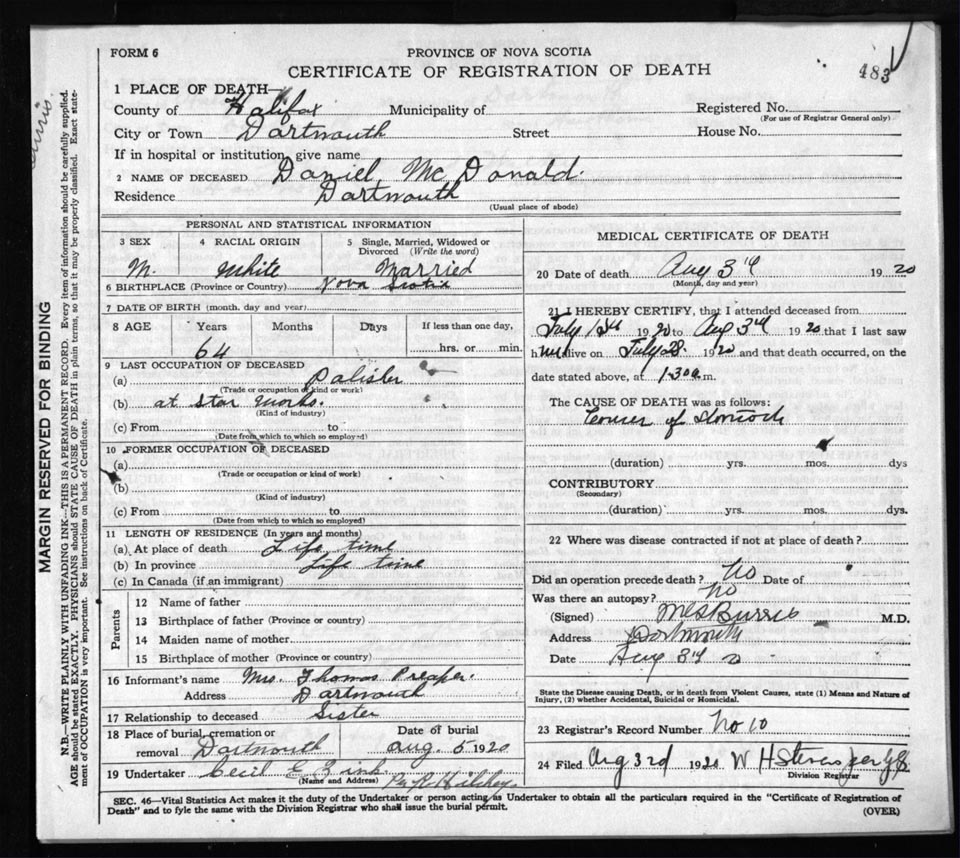 FORM 6
PROVINCE OF NOVA SCOTIA
CERTIFICATE OF REGISTRATION OF DEATH
483
1 PLACE OF DEATH—
County of Halifax Municipality of Registered No.
(For use of Registrar General only)
City or Town Dartmouth Street House No.
If in hospital or institution, give name
2 NAME OF DECEASED Daniel Mc Donald.
Residence Dartmouth
(Usual place of abode)
PERSONAL AND STATISTICAL INFORMATION
3 SEX 4 RACIAL ORIGIN 5 Single, Married, Widowed or
Divorced (Write the word)
M. White Married
6 BIRTHPLACE (Province or Country) Nova Scotia
7 DATE OF BIRTH (month, day and year)
8 AGE Years Months Days If less than one day,
64 hrs. or min.
9 LAST OCCUPATION OF DECEASED
(a) Polisher
(Trade or occupation of kind or work)
(b) at Star Works.
(Kind of industry)
(c) From to
(Date from which to which so employed)
10 FORMER OCCUPATION OF DECEASED
(a)
(Trade or occupation or kind of work)
(b)
(Kind of industry)
(c) From to
(Date from which to which so employed)
11 LENGTH OF RESIDENCE (In years and months)
(a) At place of death Life time
(b) In province Life time
(c) In Canada (if an immigrant)
Parents
12 Name of father
13 Birthplace of father (Province or country)
14 Maiden name of mother
15 Birthplace of mother (Province or country)
16 Informant's name Mrs. Thomas Preaper.
Address Dartmouth
17 Relationship to deceased Sister
18 Place of burial, cremation or Date of burial
removal Dartmouth Aug. 5 1920
19 Undertaker Cecil E Zink
(Name and Address)
MEDICAL CERTIFICATE OF DEATH
20 Date of death Aug 3rd 1920
(Month, day and year)
21 I HEREBY CERTIFY, that I attended deceased from
July 1st 1920 to Aug 3rd 1920 that I last saw
him alive on July 28 1920 and that death occurred, on the
date stated above, at 1.30 a.m.
The CAUSE OF DEATH was as follows:
Cancer of Stomach
(duration) yrs. mos. dys
CONTRIBUTORY
(Secondary)
(duration) yrs. mos. dys.
22 Where was disease contracted if not at place of death?
Did an operation precede death? No Date of
Was there an autopsy? no
(Signed) M S Burris M.D.
Address Dartmouth
Date Aug 3rd
State the Disease causing Death, or in death from Violent Causes, state (1) Means and Nature of
Injury, (2) whether Accidental, Suicidal or Homicidal.
23 Registrar's Record Number No 10
24 Filed Aug 3rd 1920 W H Stevens
Division Registrar
SEC. 46—Vital Statistics Act makes it the duty of the Undertaker or person acting as Undertaker to obtain all the particulars required in the "Certificate of Registration of
Death" and to fyle the same with the Division Registrar who shall issue the burial permit.
(OVER)
MARGIN RESERVED FOR BINDING
N.B.—WRITE PLAINLY WITH UNFADING INK—THIS IS A PERMANENT RECORD. Every item of information should be carefully supplied.
AGE should be stated EXACTLY. PHYSICIANS should STATE CAUSE OF DEATH in plain terms, so that it may be properly classified. Exact state-
ment of OCCUPATION is very important. See instructions on back of Certificate.